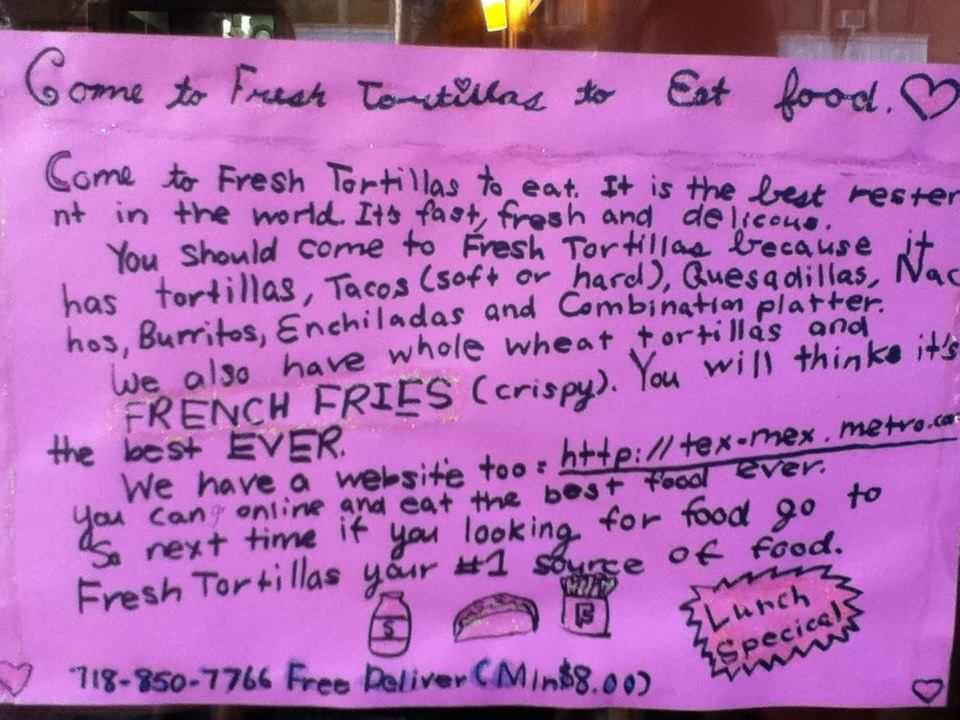 Come to Fresh Tortillas to Eat food.
Come to Fresh Tortillas to eat. It is the best rester
nt in the world. It's fast, fresh and delicous.
You should come to Fresh Tortillas because it
has tortillas, Tacos (soft or hard), Quesadillas, Nac
hos, Burritos, Enchiladas and Combination platter.
We also have whole wheat tortillas and
FRENCH FRIES (crispy). You will thinks it's
the best EVER.
We have a website too: http://tex-mex.metro.co
you can online and eat the best food ever.
So next time if you looking for food go to
Fresh Tortillas your #1 source of food.
S
F
Lunch
Specical
718-850-7766 Free Deliver (Min$8.00)